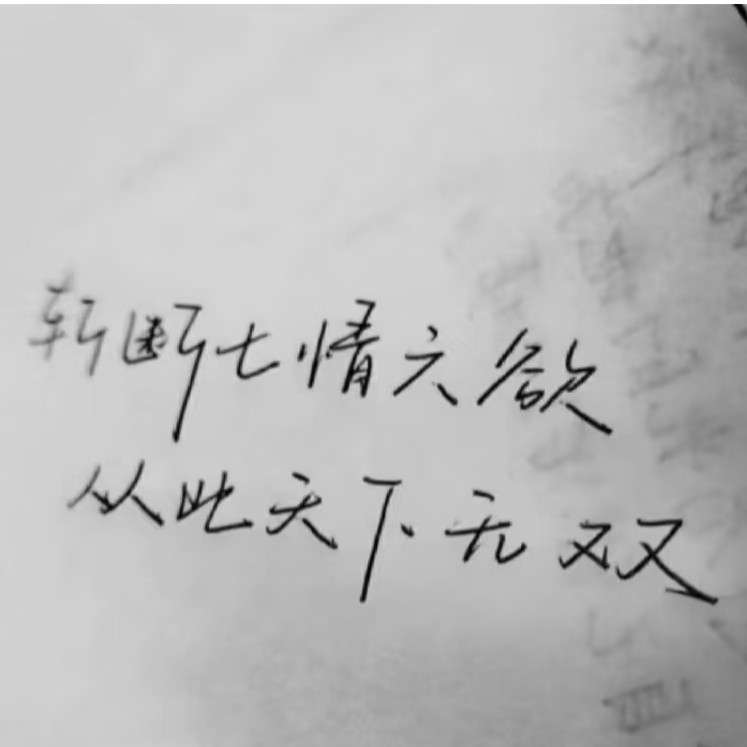 斩断七情六欲
从此天下无双